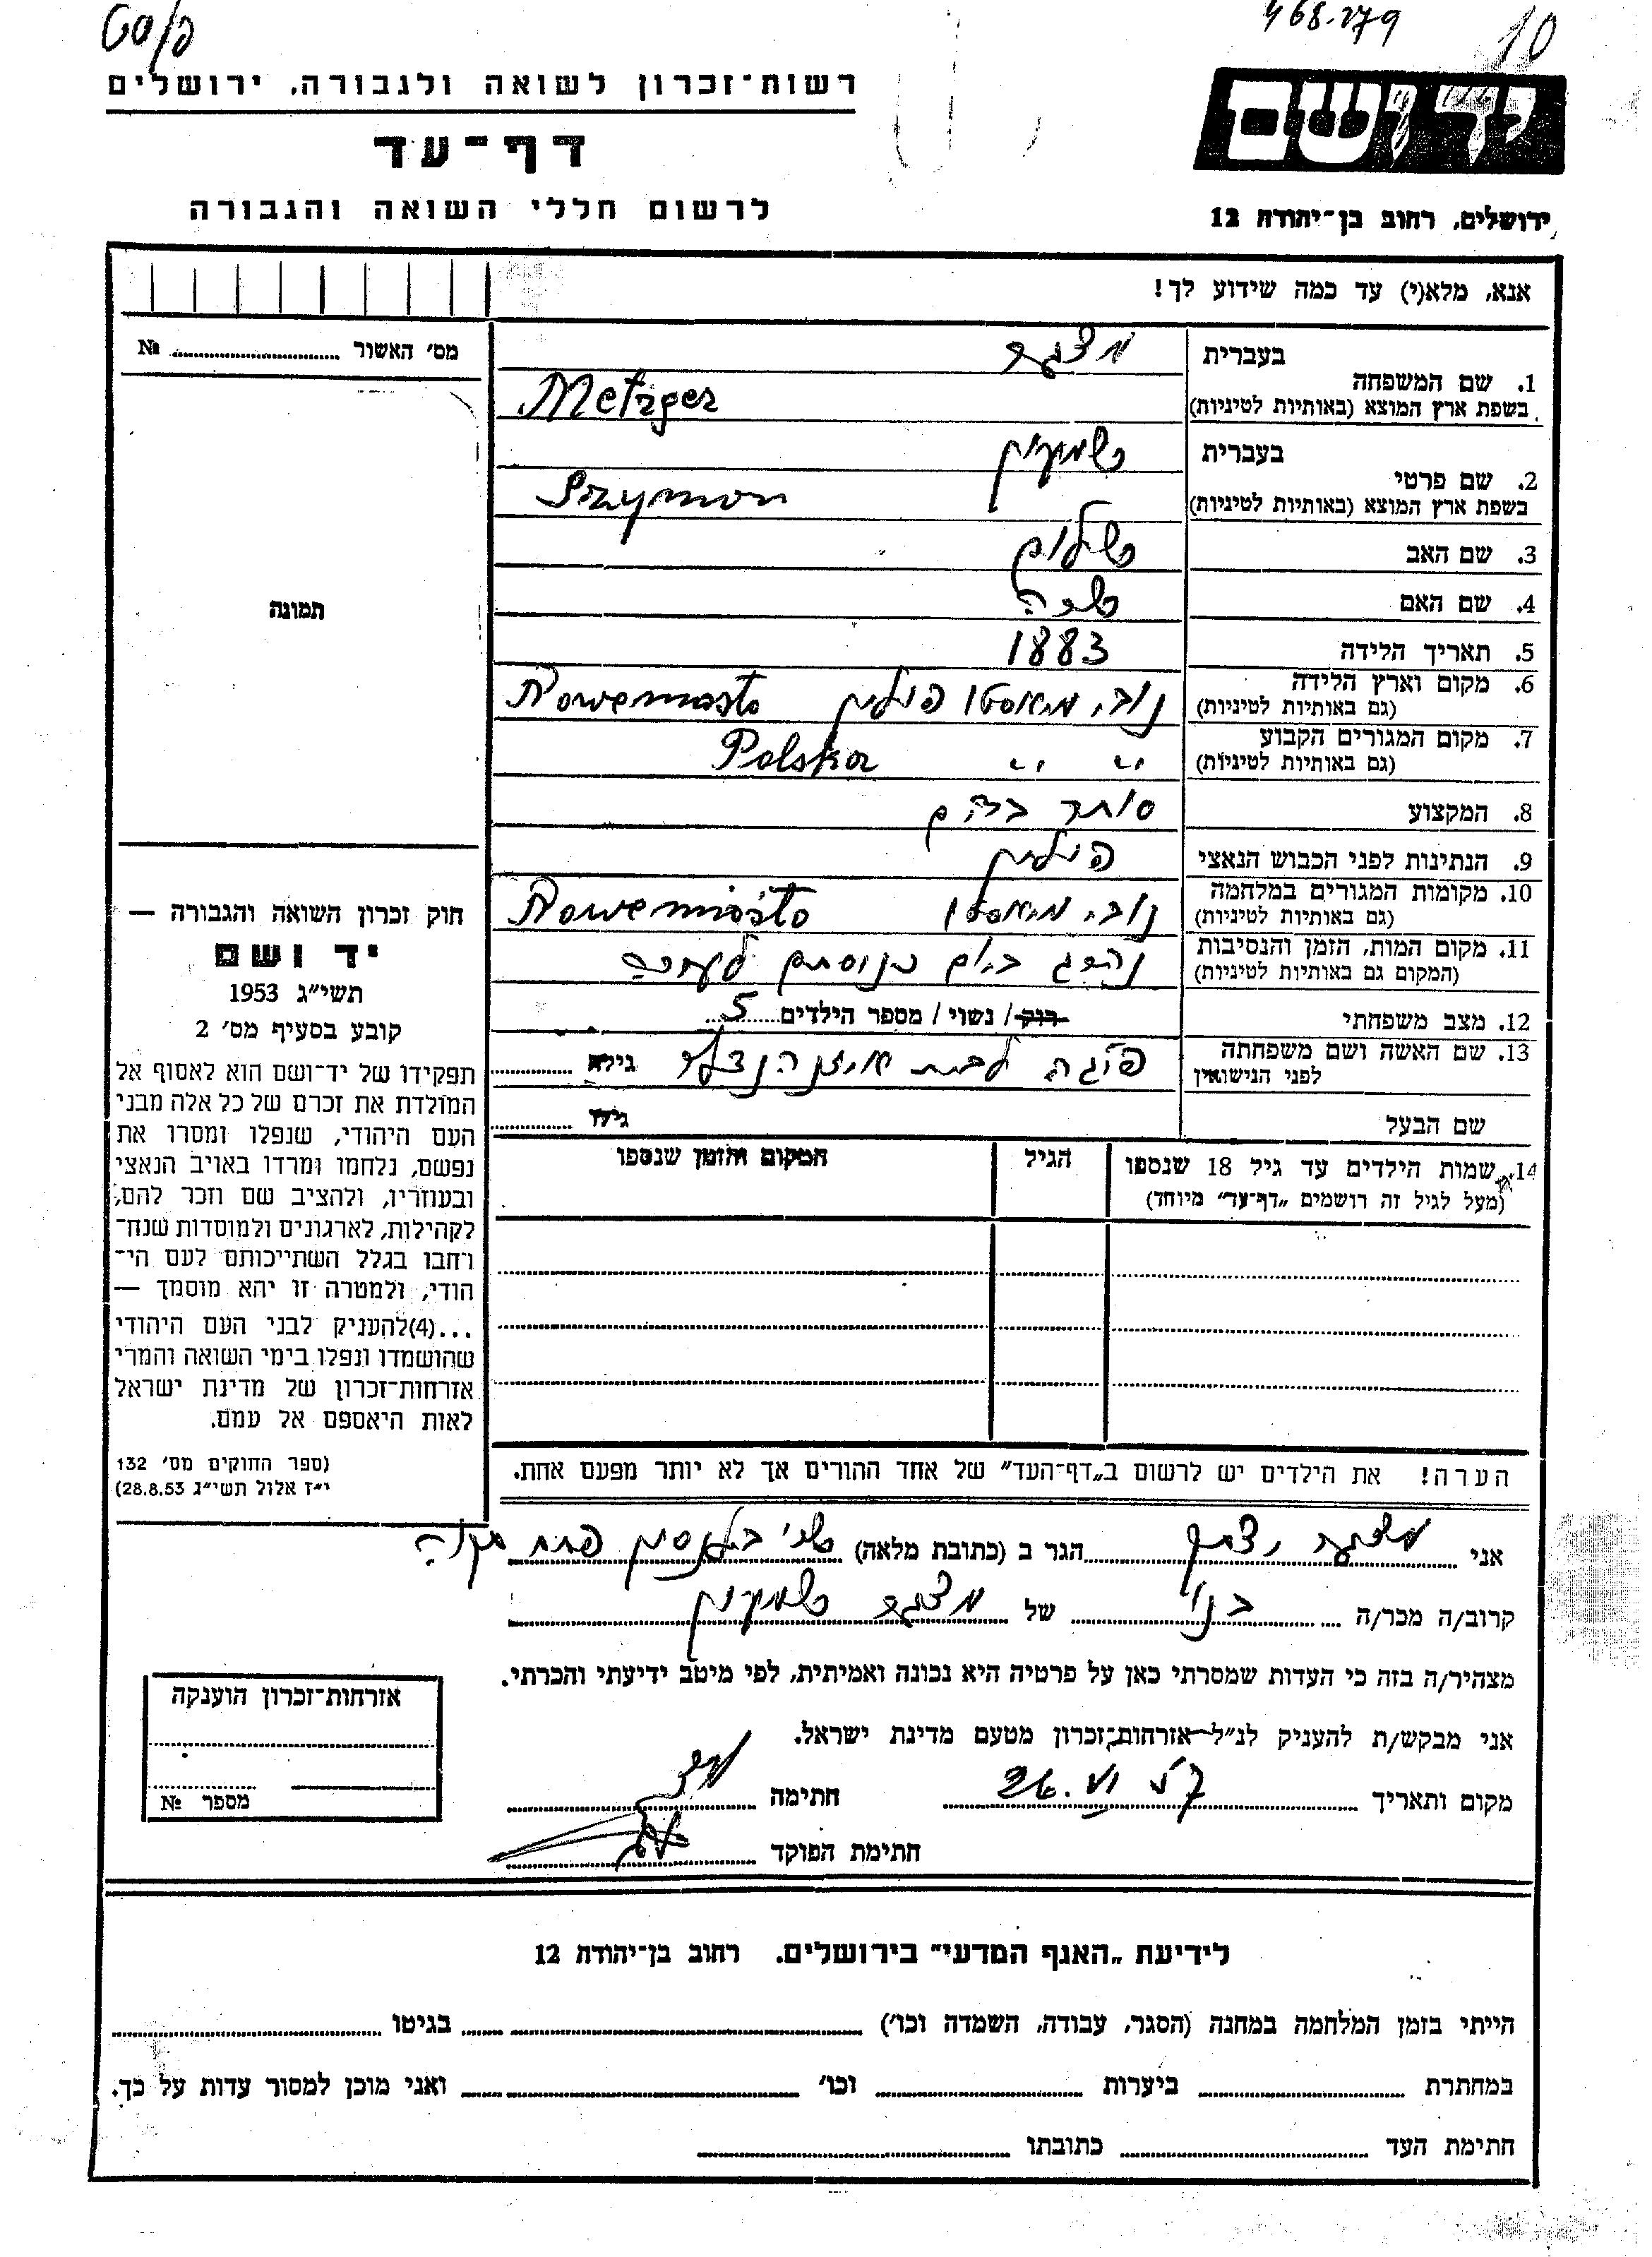 468.279
10
יד ושם
ירושלים, רחוב בן־יהודה 12
רשות־זכרון לשואה ולגבורה, ירושלים
דף־עד
לרשום חללי השואה והגבורה
אנא, מלא(י) עד כמה שידוע לך!
מס׳ האשור № ........
תמונה
בעברית מצגר
1. שם המשפחה
בשפת ארץ המוצא (באותיות לטיניות) Metzger
בעברית שמעון
2. שם פרטי
בשפת ארץ המוצא (באותיות לטיניות) Szymon
3. שם האב שלום
4. שם האם שרה
5. תאריך הלידה 1883
6. מקום וארץ הלידה
(גם באותיות לטיניות) נובי מיאסטו פולין Nowemiasto
7. מקום המגורים הקבוע
(גם באותיות לטיניות) " " Polska
8. המקצוע סוחר
9. הנתינות לפני הכבוש הנאצי פולין
10. מקומות המגורים במלחמה
(גם באותיות לטיניות) נובי מיאסטו Nowemiasto
11. מקום המות, הזמן והנסיבות
(המקום גם באותיות לטיניות) נהרג
12. מצב משפחתי רוק/ נשוי / מספר הילדים 5
13. שם האשה ושם משפחתה
לפני הנישואין פייגה לבית גילה
שם הבעל גילו
14. שמות הילדים עד גיל 18 שנספו
(מעל לגיל זה רושמים „דף־עד״ מיוחד)
הגיל
המקום והזמן שנספו
הערה! את הילדים יש לרשום ב„דף־העד״ של אחד ההורים אך לא יותר מפעם אחת.
חוק זכרון השואה והגבורה —
יד ושם
תשי״ג 1953
קובע בסעיף מס׳ 2
תפקידו של יד־ושם הוא לאסוף אל
המולדת את זכרם של כל אלה מבני
העם היהודי, שנפלו ומסרו את
נפשם, נלחמו ומרדו באויב הנאצי
ובעוזריו, ולהציב שם וזכר להם,
לקהילות, לארגונים ולמוסדות שנח־
רחבו בגלל השתייכותם לעם הי־
הודי, ולמטרה זו יהא מוסמך —
...(4)להעניק לבני העם היהודי
שהושמדו ונפלו בימי השואה והמרי
אזרחות־זכרון של מדינת ישראל
לאות היאספם אל עמם.
(ספר החוקים מס׳ 132
י״ז אלול תשי״ג 28.8.53)
אני מצגר הגר ב (כתובת מלאה) פתח תקוה
קרוב/ה מכר/ה בנו של מצגר שמעון
מצהיר/ה בזה כי העדות שמסרתי כאן על פרטיה היא נכונה ואמיתית, לפי מיטב ידיעתי והכרתי.
אני מבקש/ת להעניק לנ״ל אזרחות־זכרון מטעם מדינת ישראל.
מקום ותאריך 26.VI 57 חתימה
חתימת הפוקד
אזרחות־זכרון הוענקה
מספר №
לידיעת „האגף המדעי״ בירושלים, רחוב בן־יהודה 12
הייתי בזמן המלחמה במחנה (הסגר, עבודה, השמדה וכו׳) בגיטו
במחתרת ביערות וכו׳ ואני מוכן למסור עדות על כך.
חתימת העד כתובתו